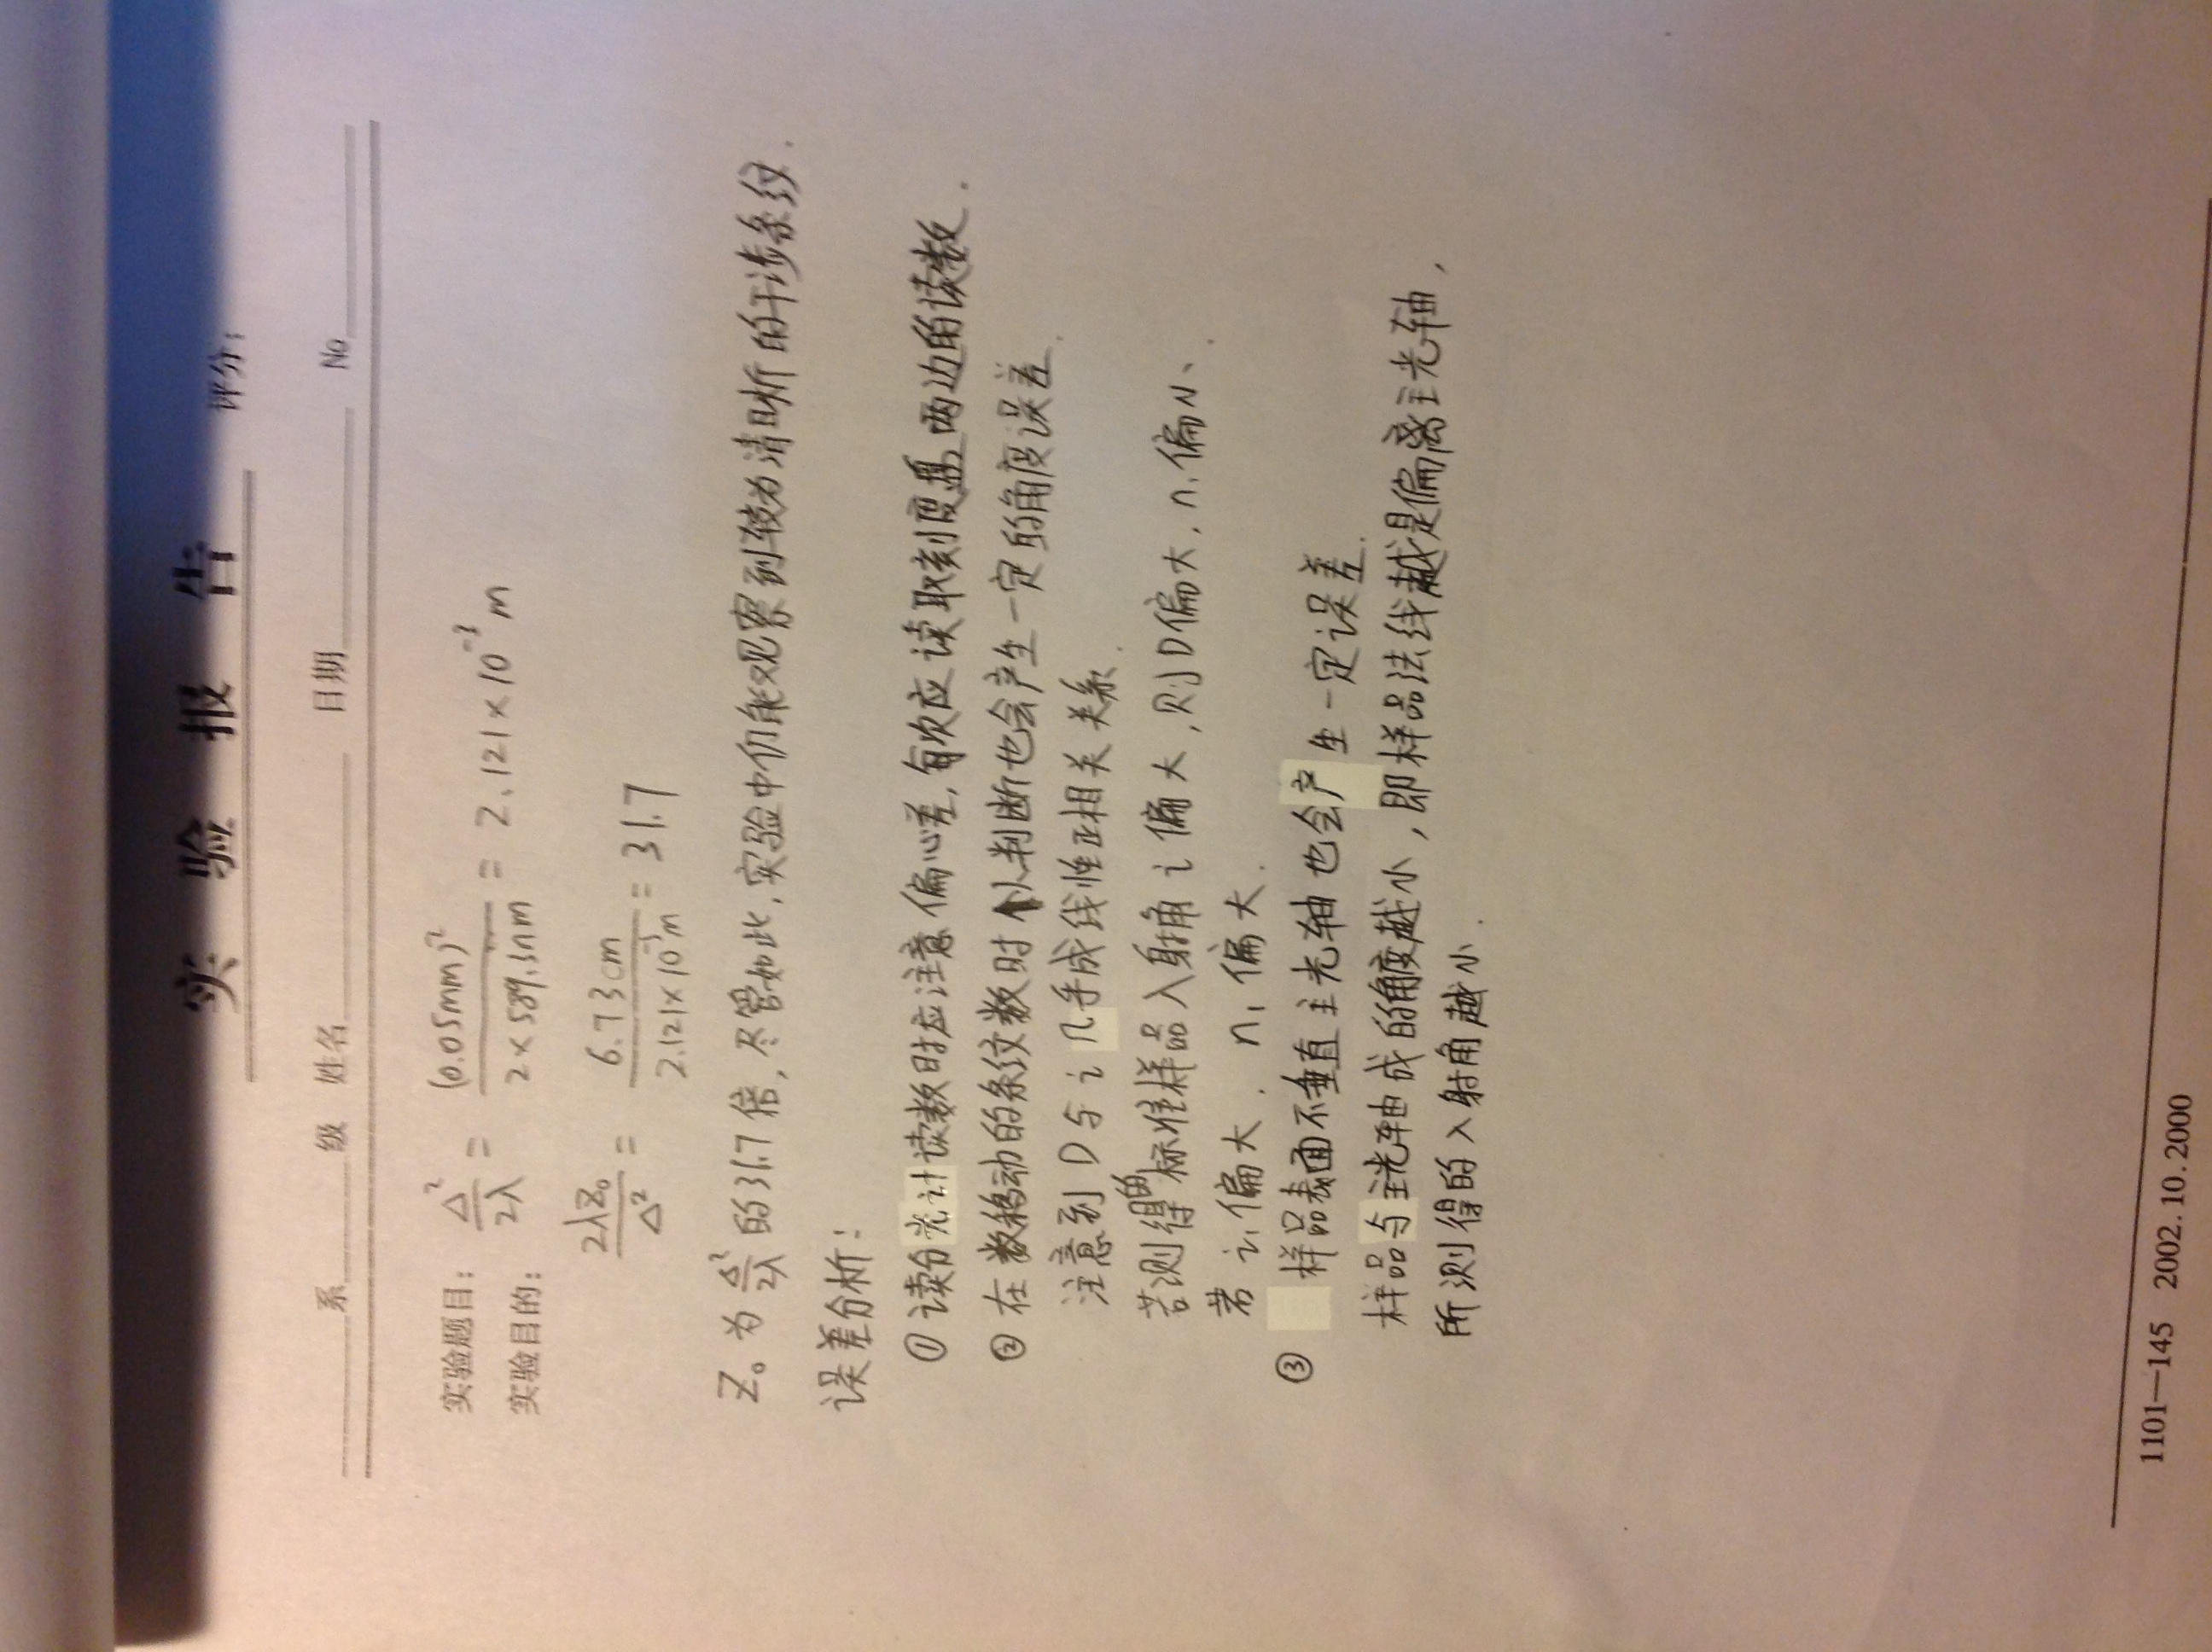 实 验 报 告 评分:
系 级 姓名 日期 No
实验题目: Δ²/2λ = (0.05mm)²/2×589.3nm = 2.121×10⁻³m
实验目的:
2λZ₀/Δ² = 6.73cm/2.121×10⁻³m = 31.7
Z₀为Δ²/2λ的31.7倍,尽管如此,实验中仍能观察到较为清晰的干涉条纹.
误差分析:
① 读分光计读数时应注意偏心差,每次应读取刻度盘两边的读数.
② 在数移动的条纹数时人判断也会产生一定的角度误差.
注意到D与i几乎成线性正相关关系.
若测得的标准样品入射角i偏大,则D偏大,n₁偏小.
若i₁偏大.n₁偏大.
③ 样品表面不垂直主光轴也会产生一定误差.
样品与主光轴成的角度越小,即样品法线越是偏离主光轴,
所测得的入射角越小.
1101—145 2002.10.2000